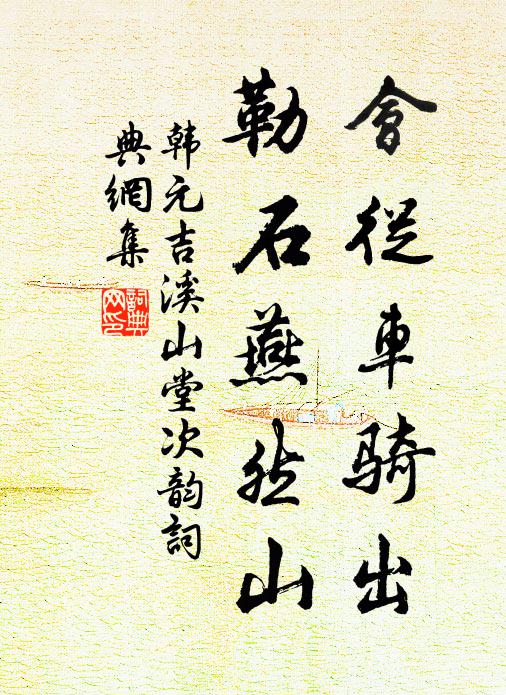 會從車騎出
勒石燕然山
韩元吉溪山堂次韵詞
典網集
詞典网印